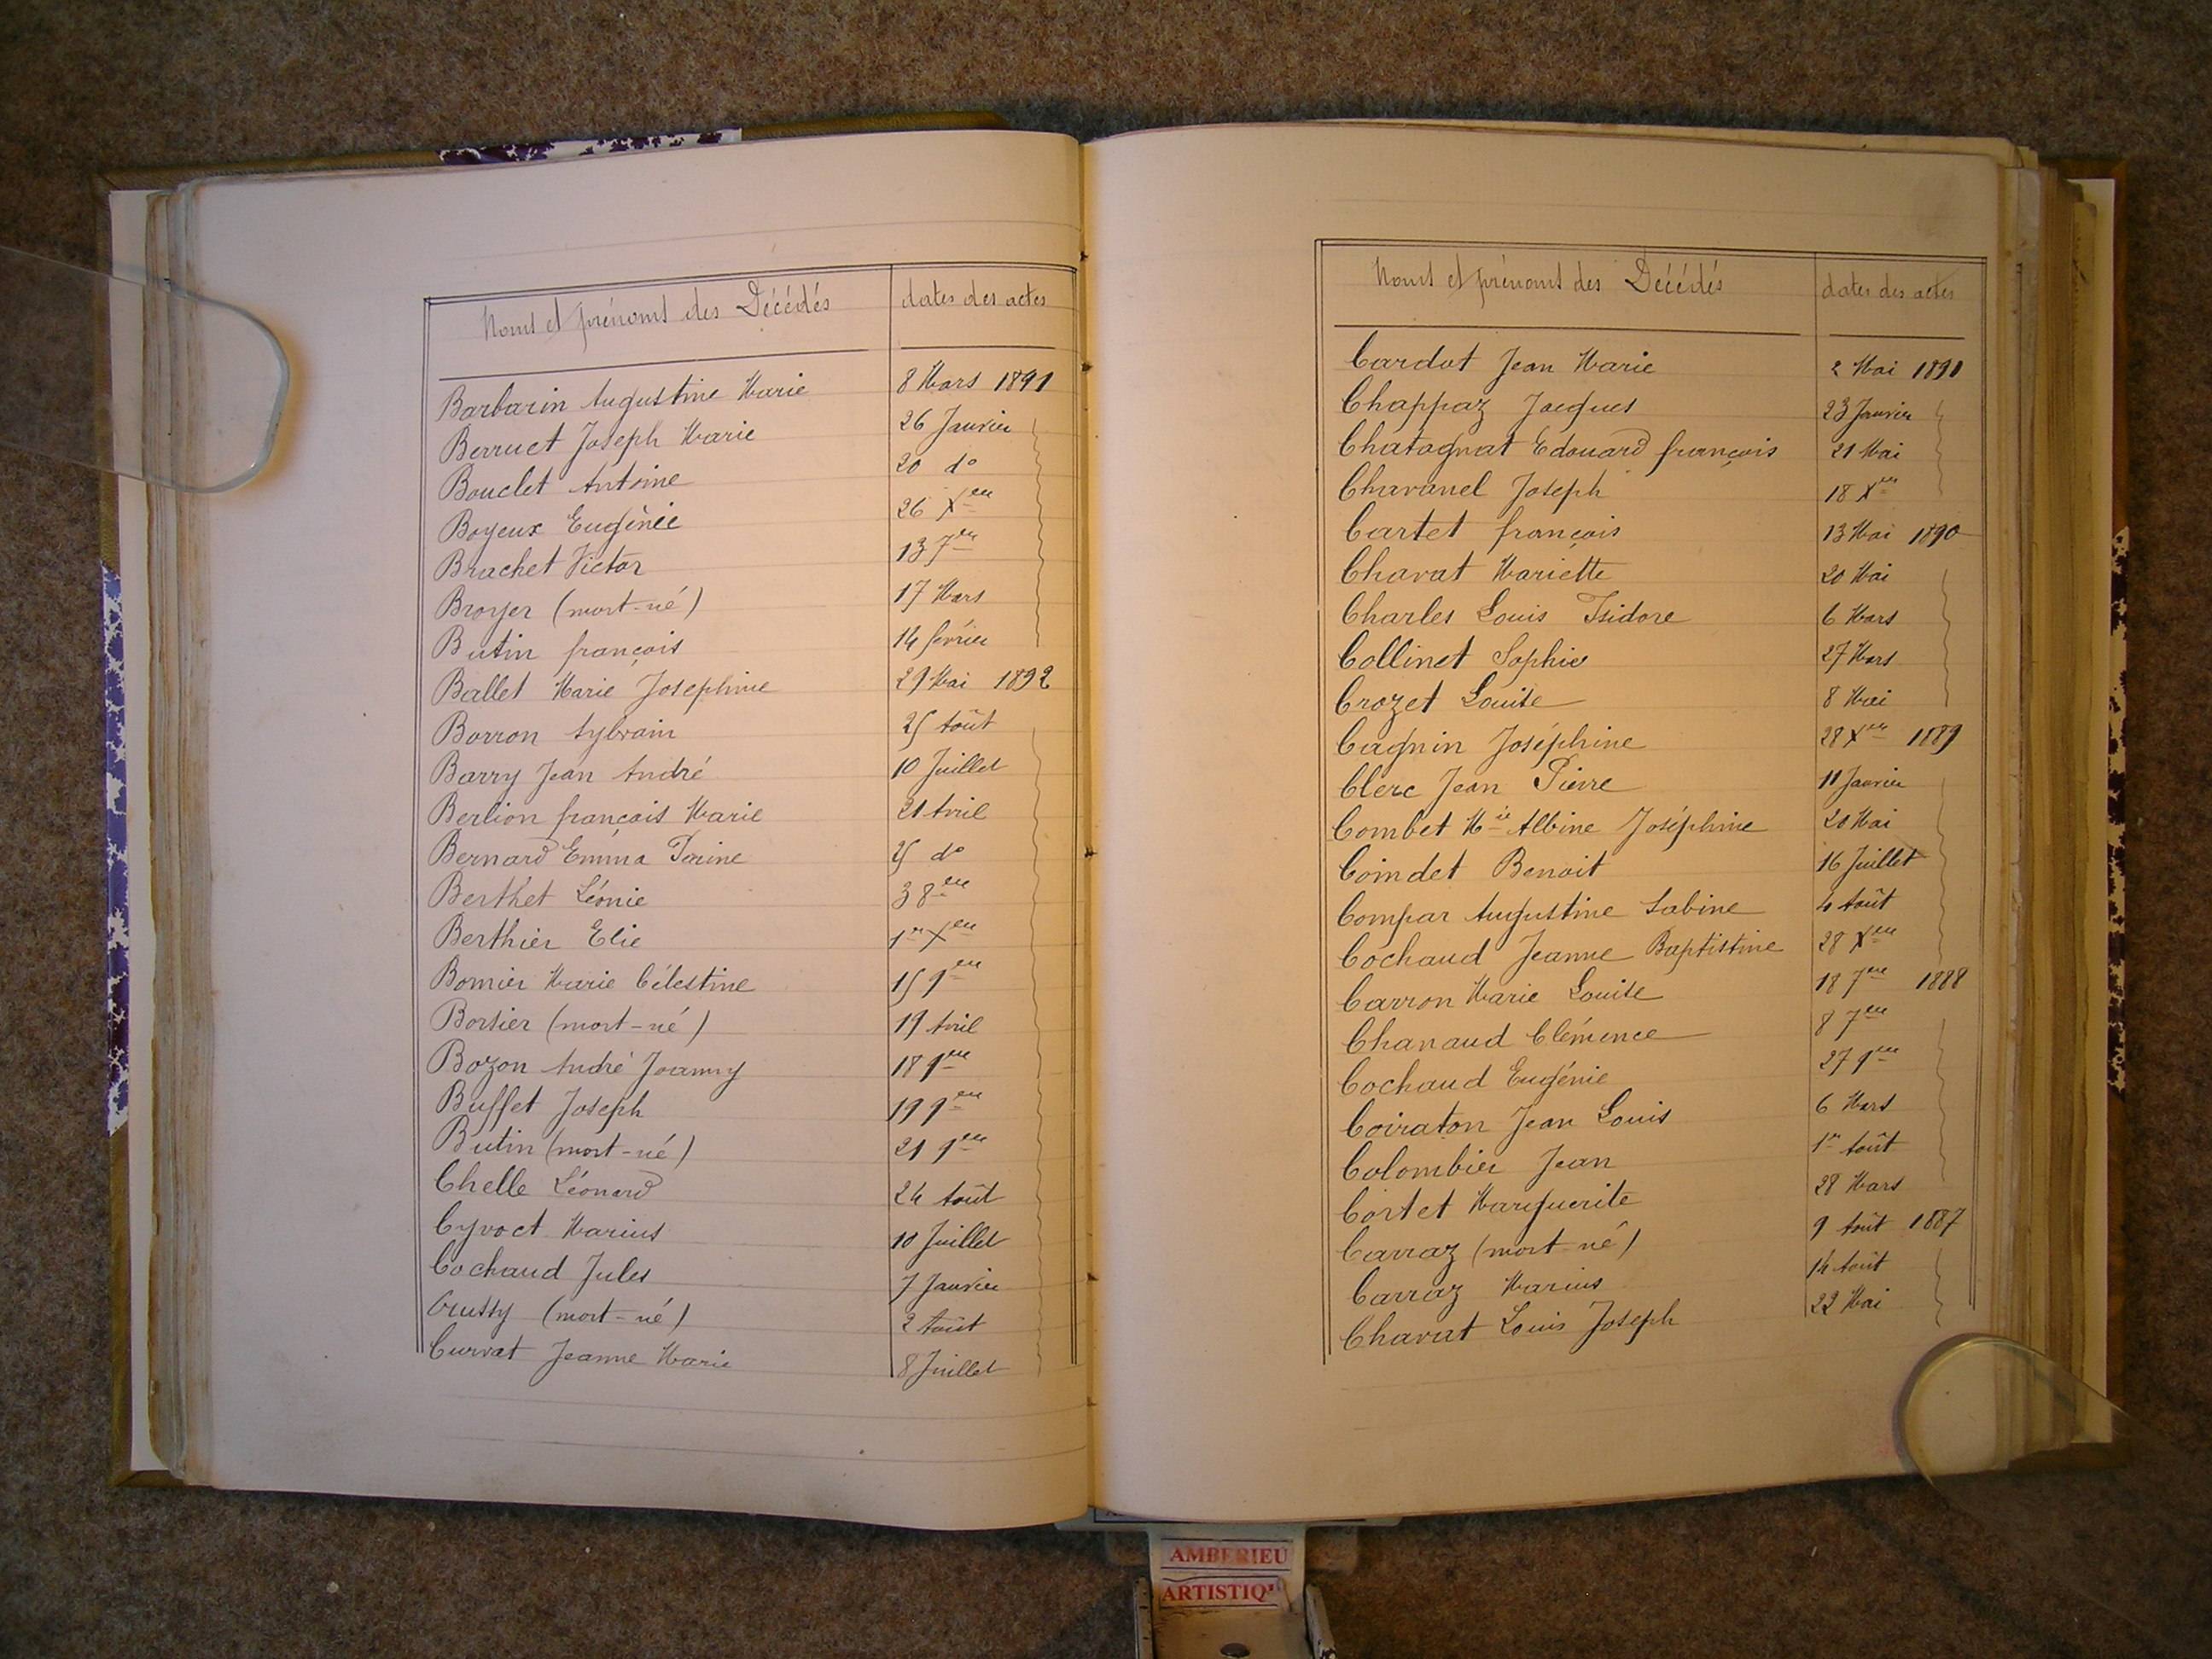 Noms et prénoms des Décédés dates des actes
Barbarin Augustine Marie 8 Mars 1891
Berruet Joseph Marie 26 Janvier
Bouclet Antoine 20 do
Boyeux Eugénie 26 Xbre
Brachet Victor 13 7bre
Broyer (mort-né) 17 Mars
Butin françois 14 février
Ballet Marie Josephine 29 Mai 1892
Borron Sylvain 25 Août
Barry Jean André 10 Juillet
Berlion françois Marie 21 Avril
Bernard Emma 25 do
Berthet Léonie 3 8bre
Berthier Elie 1er Xbre
Bornier Marie Célestine 15 9bre
Borsier (mort-né) 19 Avril
Bozon André Joanny 18 9bre
Buffet Joseph 19 9bre
Butin (mort-né) 21 9bre
Chelle Léonard 24 Août
Cyvoct Marius 10 Juillet
Cochaud Jules 7 Janvier
(mort-né) 2 Août
Curvat Jeanne Marie 8 Juillet
Noms et prénoms des Décédés dates des actes
Cardot Jean Marie 2 Mai 1891
Chappaz Jacques 23 Janvier
Chatagnat Edouard françois 21 Mai
Chavanel Joseph 18 Xbre
Cartet françois 13 Mai 1890
Chavat Mariette 20 Mai
Charles Louis Isidore 6 Mars
Collinet Sophie 27 Mars
Crozet Louise 8 Mai
Cagnin Joséphine 28 Xbre 1889
Clerc Jean Pierre 11 Janvier
Combet Mie Albine Joséphine 20 Mai
Coindet Benoit 16 Juillet
Compar Augustine Sabine 4 Août
Cochaud Jeanne Baptistine 28 Xbre
Carron Marie Louise 18 7bre 1888
Chanaud Clémence 8 7bre
Cochaud Eugénie 27 9bre
Coiraton Jean Louis 6 Mars
Colombier Jean 1er Août
Cortet Marguerite 28 Mars
Carraz (mort-né) 9 Août 1887
Carraz Marius 14 Août
Chavat Louis Joseph 22 Mai
AMBERIEU
ARTISTIQU